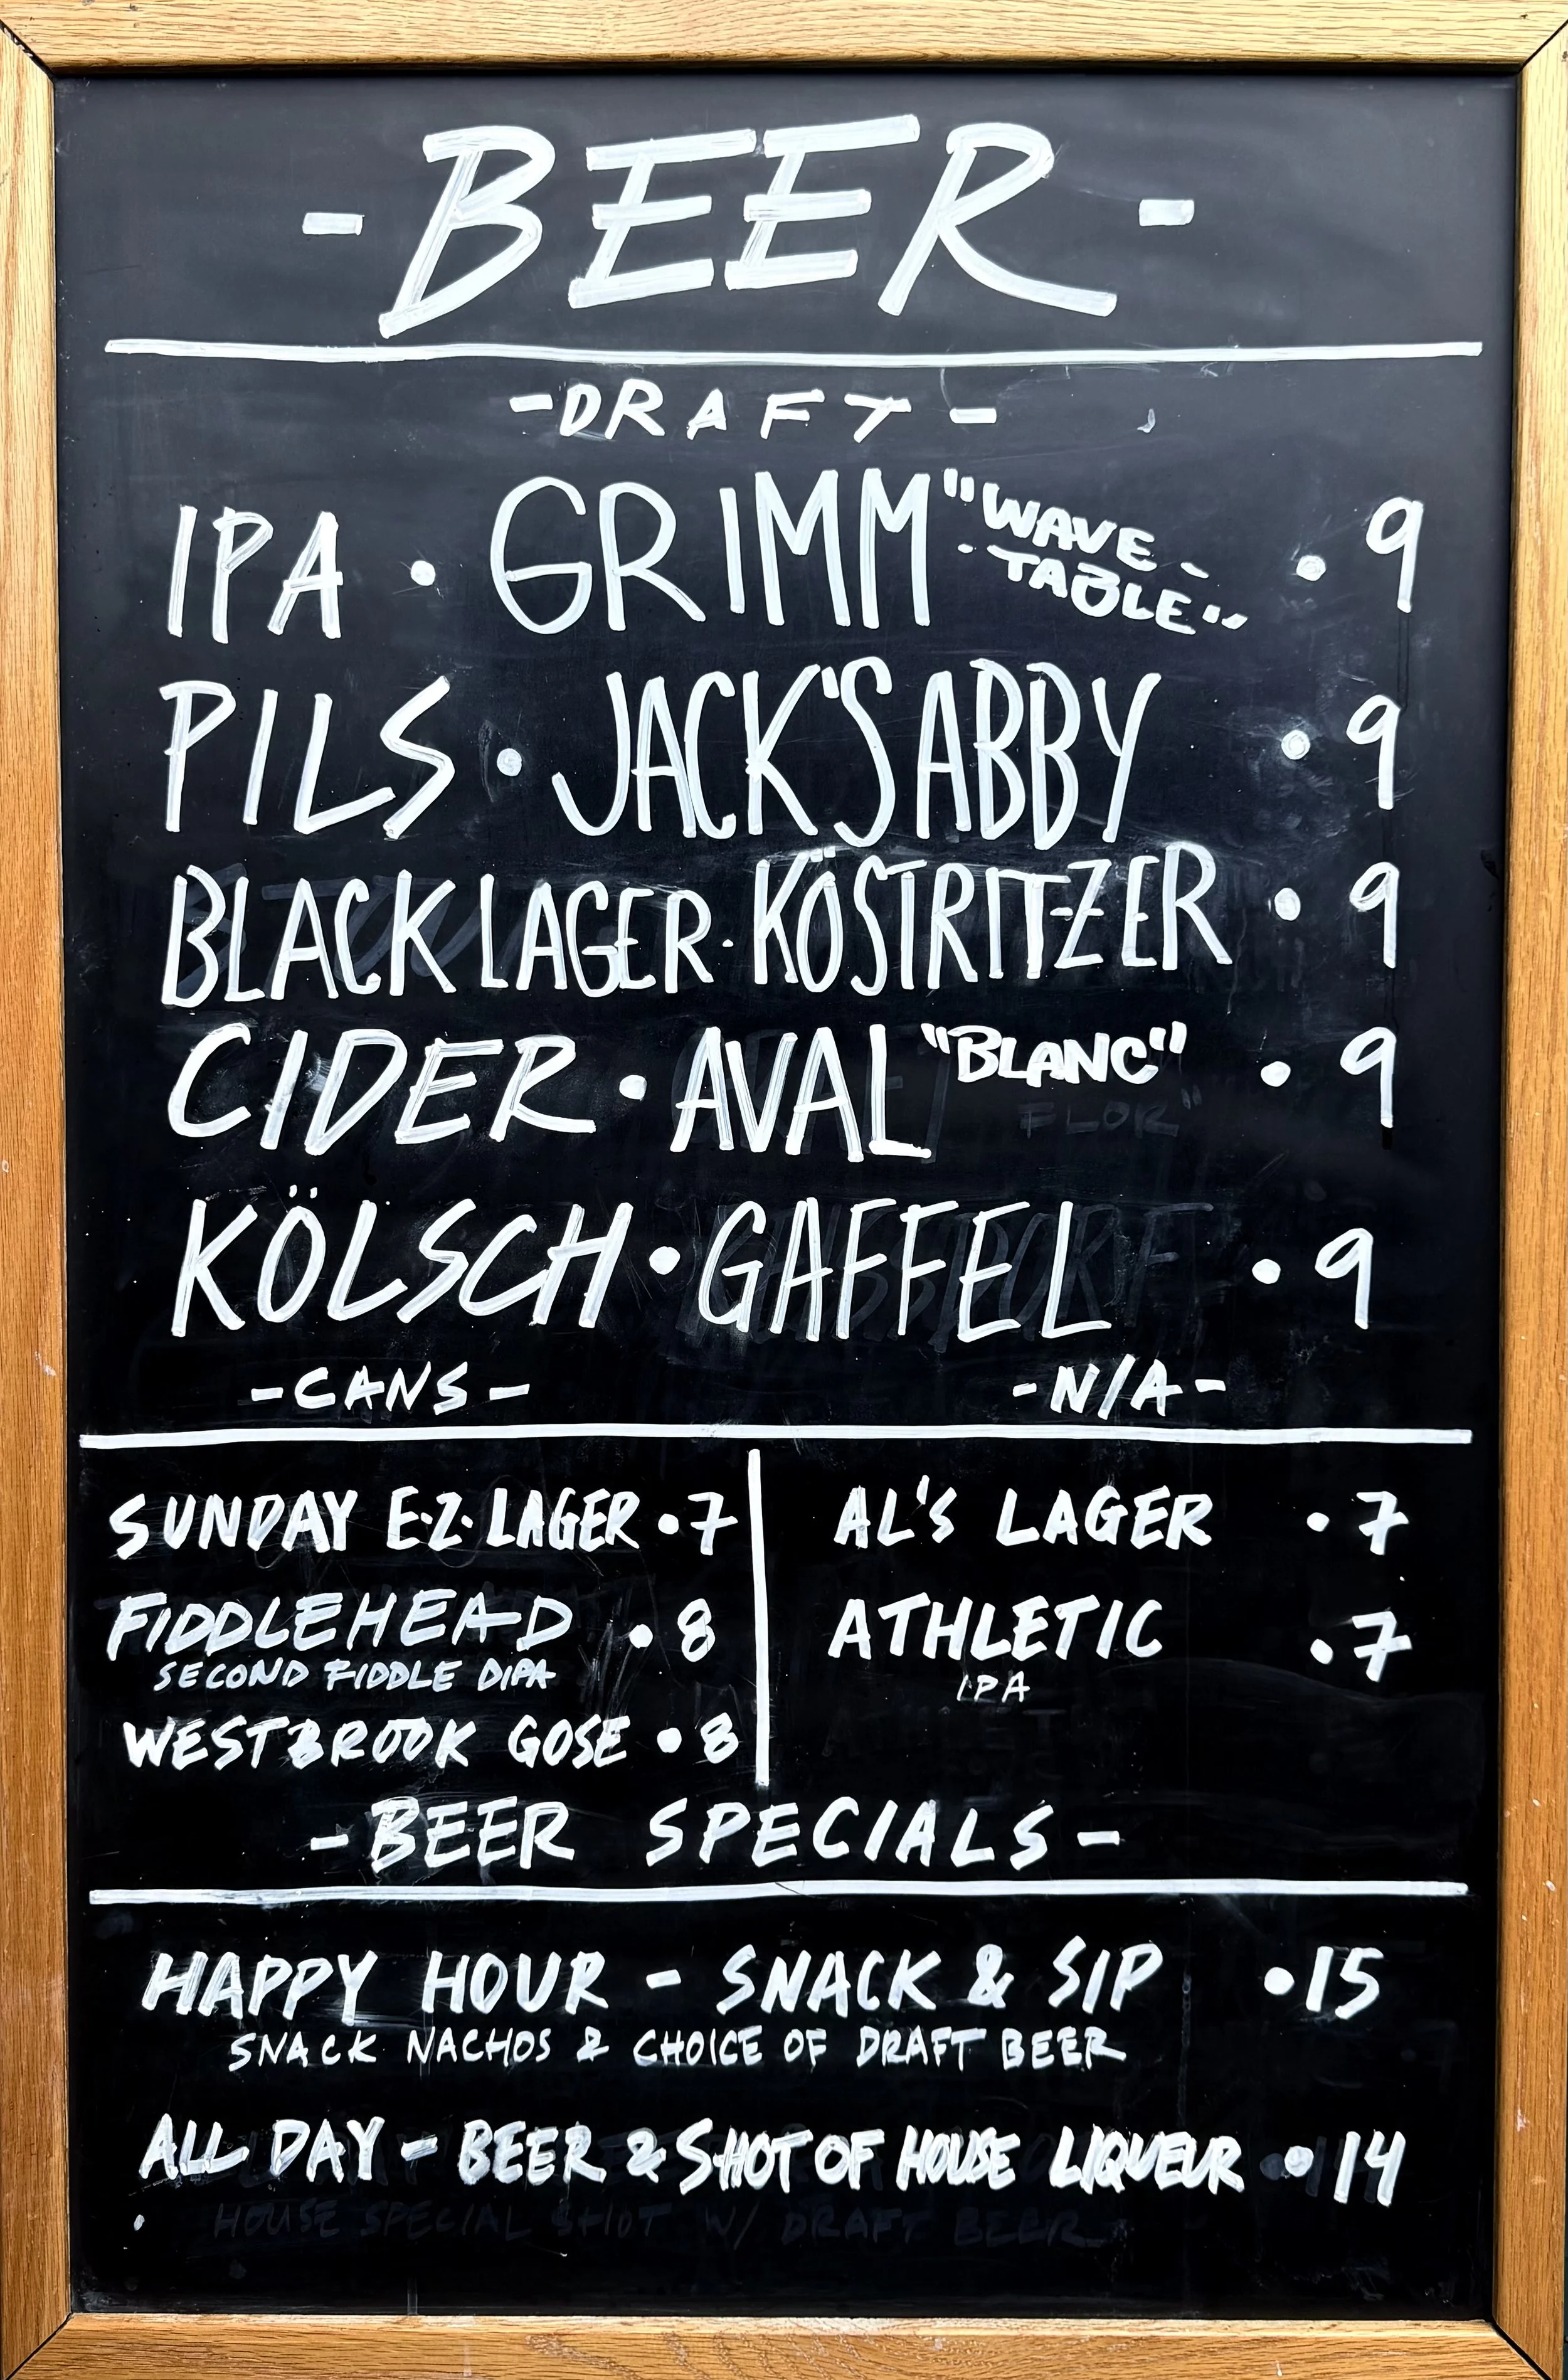 - BEER -
- DRAFT -
IPA • GRIMM "WAVE-
TABLE" • 9
PILS • JACK'S ABBY • 9
BLACK LAGER • KÖSTRITZER • 9
CIDER • AVAL "BLANC" • 9
FLOR"
KÖLSCH • GAFFEL • 9
- CANS -
SUNDAY E.Z. LAGER • 7
FIDDLEHEAD • 8
SECOND FIDDLE DIPA
WESTBROOK GOSE • 8
- N/A -
AL'S LAGER • 7
ATHLETIC • 7
IPA
- BEER SPECIALS -
HAPPY HOUR - SNACK & SIP • 15
SNACK NACHOS & CHOICE OF DRAFT BEER
ALL DAY - BEER & SHOT OF HOUSE LIQUEUR • 14
HOUSE SPECIAL SHOT W/ DRAFT BEER